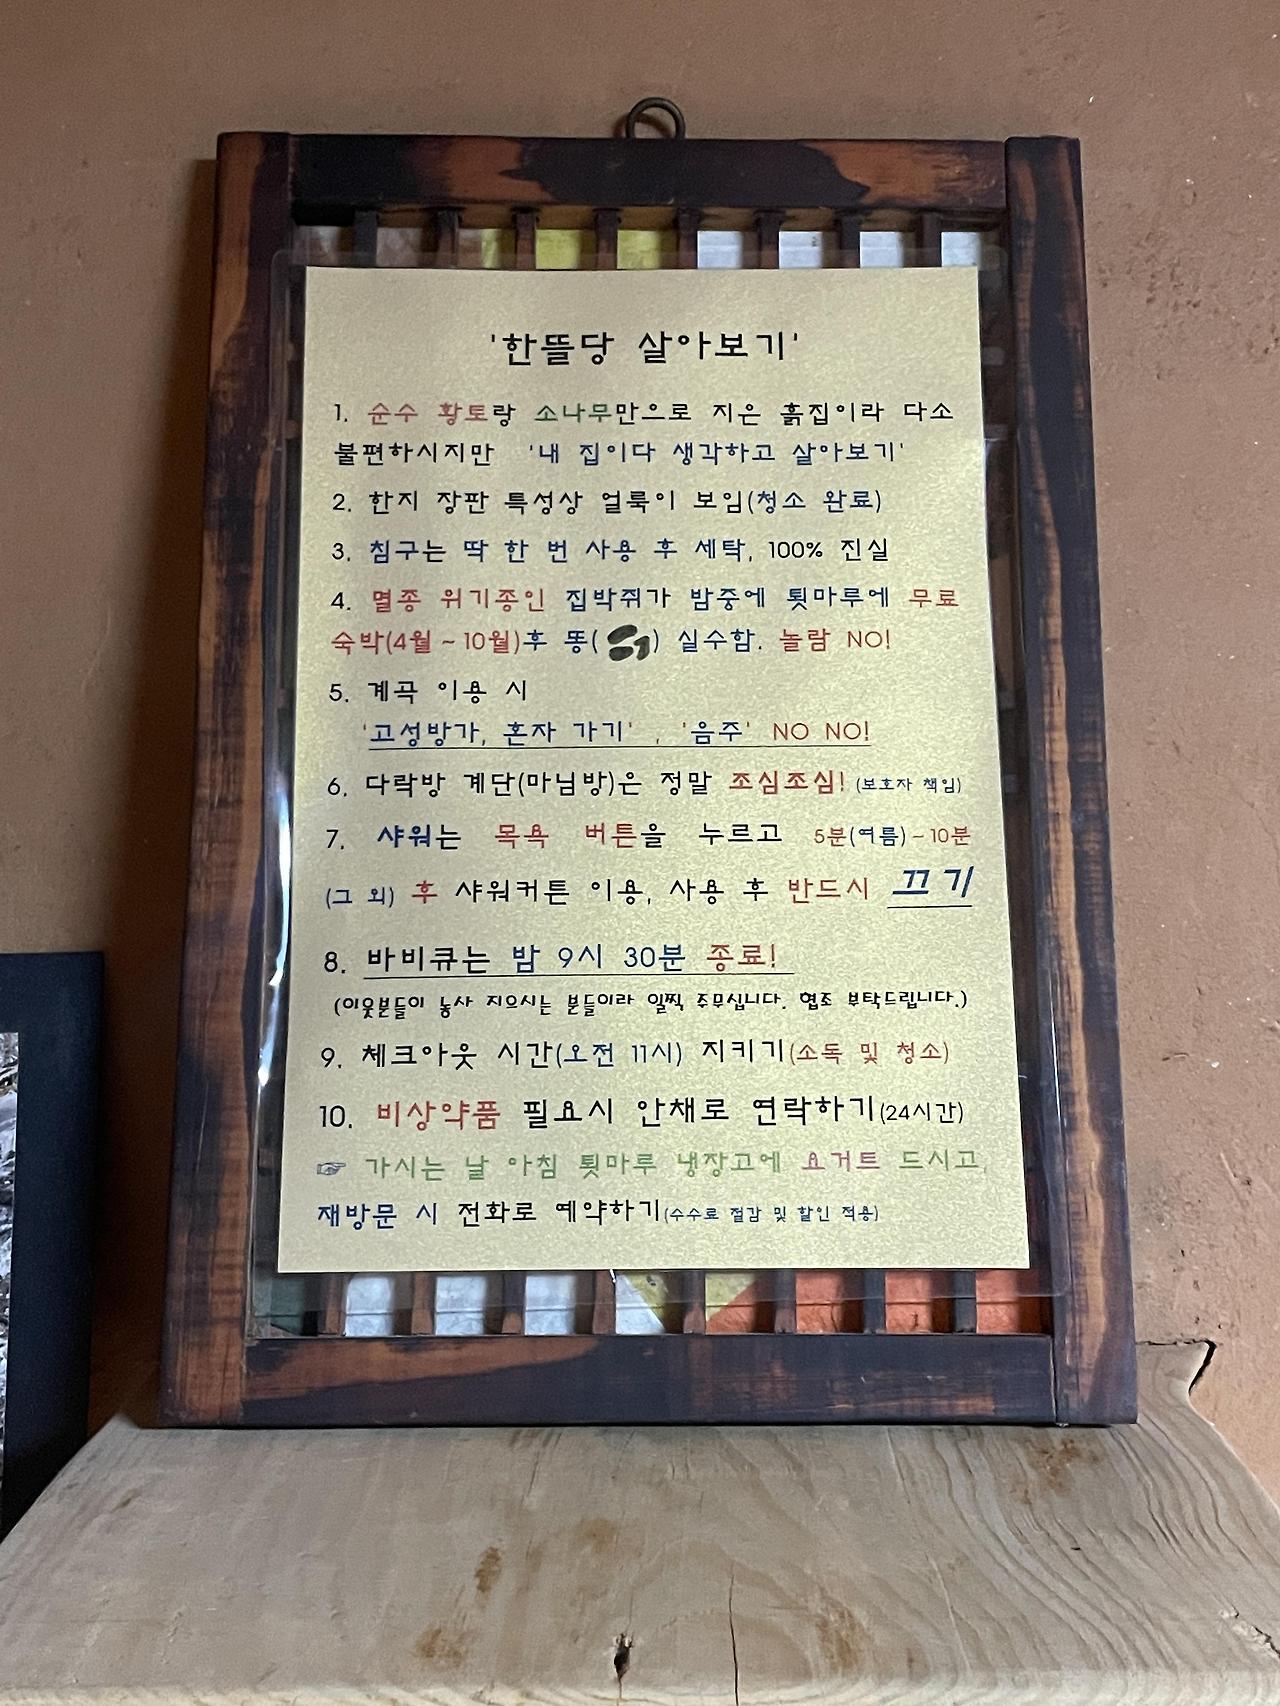 '한뜰당 살아보기'
1. 순수 황토랑 소나무만으로 지은 흙집이라 다소
불편하시지만 '내 집이다 생각하고 살아보기'
2. 한지 장판 특성상 얼룩이 보임(청소 완료)
3. 침구는 딱 한 번 사용 후 세탁, 100% 진실
4. 멸종 위기종인 집박쥐가 밤중에 툇마루에 무료
숙박(4월 ~ 10월)후 똥( ) 실수함. 놀람 NO!
5. 계곡 이용 시
'고성방가, 혼자 가기' , '음주' NO NO!
6. 다락방 계단(마님방)은 정말 조심조심! (보호자 책임)
7. 샤워는 목욕 버튼을 누르고 5분(여름) ~ 10분
(그 외) 후 샤워커튼 이용, 사용 후 반드시 끄기
8. 바비큐는 밤 9시 30분 종료!
(이웃분들이 농사 지으시는 분들이라 일찍 주무십니다. 협조 부탁드립니다.)
9. 체크아웃 시간(오전 11시) 지키기(소독 및 청소)
10. 비상약품 필요시 안채로 연락하기(24시간)
☞ 가시는 날 아침 툇마루 냉장고에 요거트 드시고,
재방문 시 전화로 예약하기(수수료 절감 및 할인 적용)